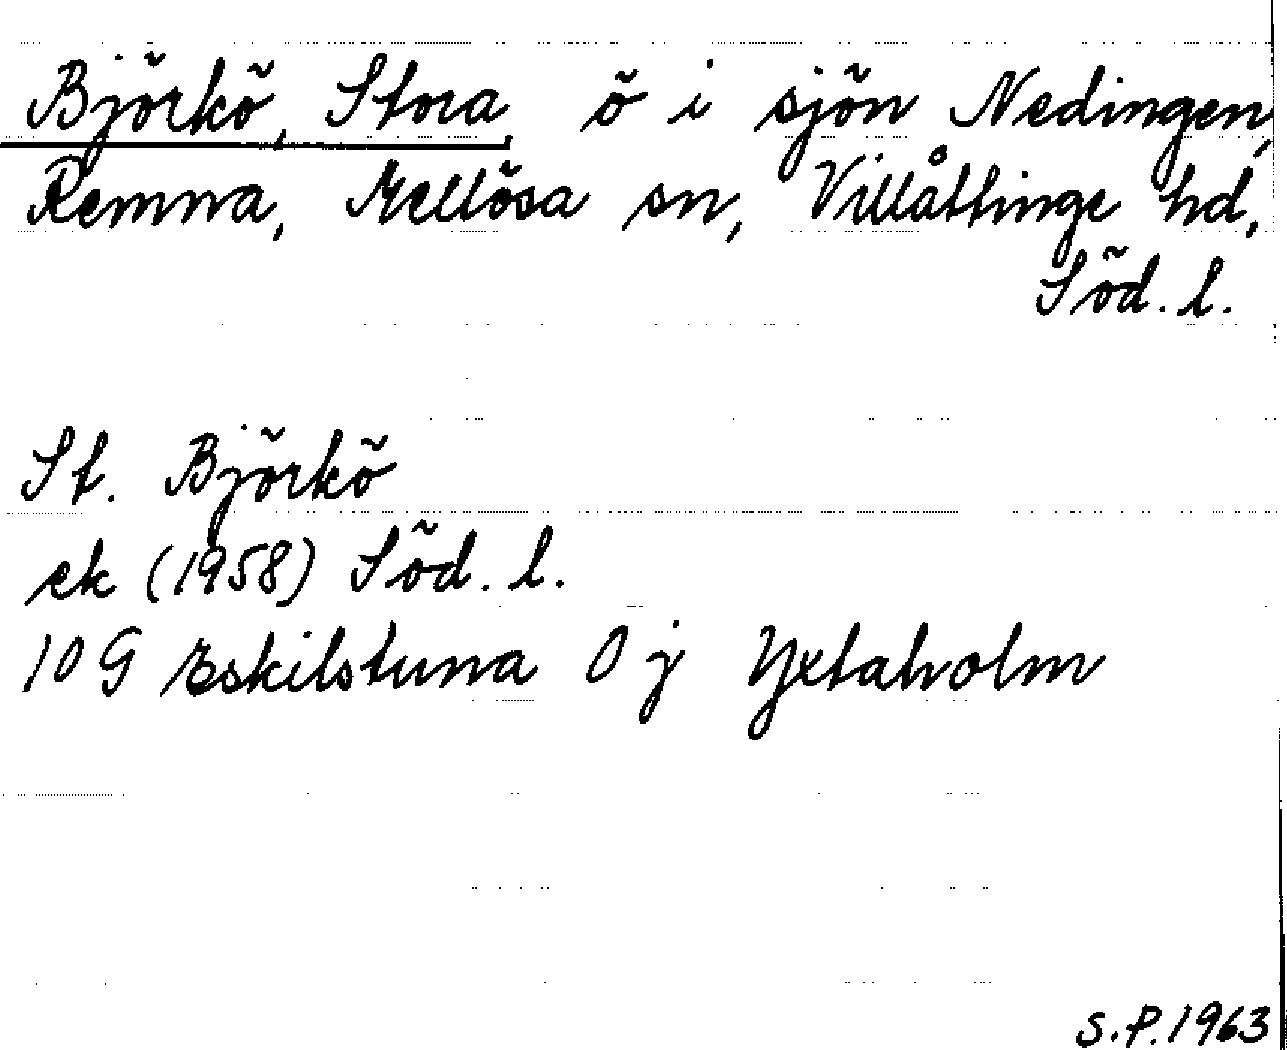 Björkö, Stora, ö i sjön Nedingen,
Remna, Mellösa sn, Villåttinge hd,
Söd. l.
St. Björkö
ek (1958) Söd. l.
10 G Eskilstuna 0 j Yxtaholm
S.P. 1963